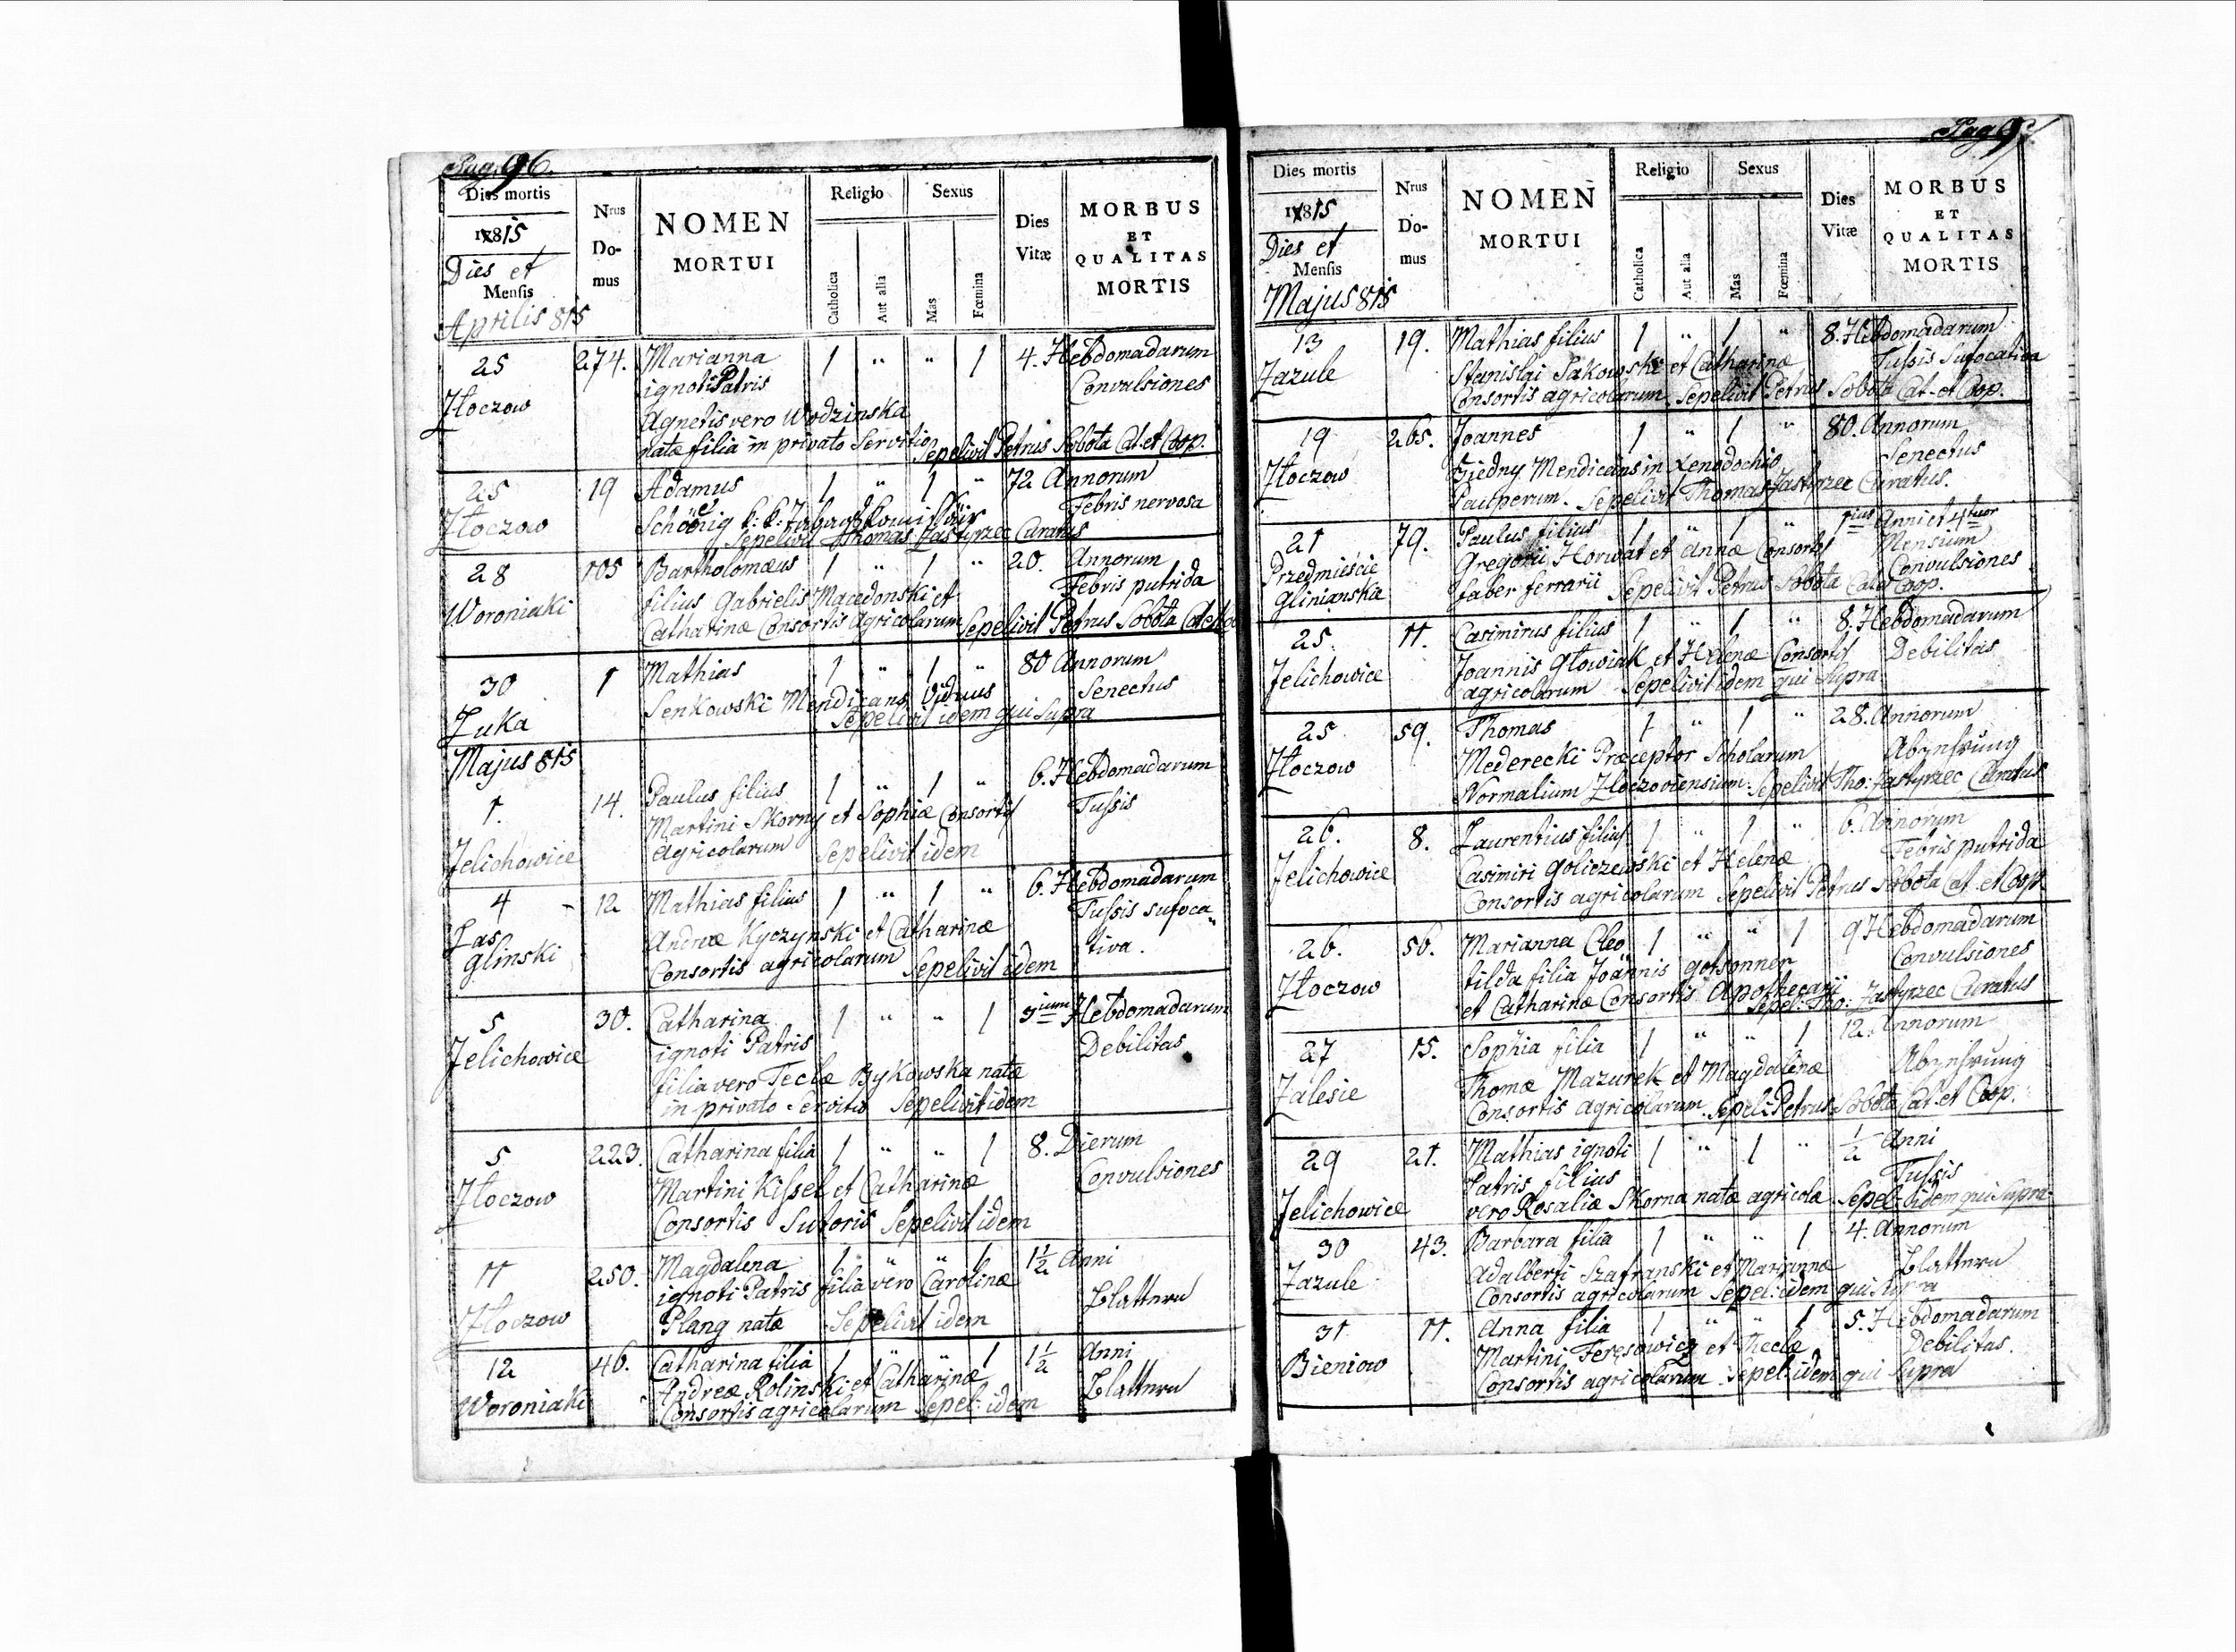 Pag. 96.
Dies mortis
Nrus Domus
NOMEN MORTUI
Religio
Sexus
Dies Vitæ
MORBUS ET QUALITAS MORTIS
1815
Dies et Mensis
Catholica
Aut alia
Mas
Fœmina
Aprilis 815
25 274. Marianna 1 " " 1 4. Hebdomadarum
Złoczow ignoti Patris Convulsiones
Agnetis vero Wodzinska
natæ filia in privato Servitio Sepelivit Petrus Sobota Cat. et Coop.
25 19 Adamus 1 " 1 " 72 Annorum
Złoczow Febris nervosa
Sepelivit Thomas Jastyrzec Curatus
28 105 Bartholomæus 1 " 1 " 20. Annorum
Woroniaki filius Gabrielis Macedonski et Febris putrida
Catharinæ Consortis Agricolarum Sepelivit Petrus Sobota
30 1 Mathias 1 " 1 " 80 Annorum
Łuka Senkowski Mendicans Viduus Senectus
Sepelivit idem qui Supra
Majus 815
1. 14. Paulus filius 1 " 1 " 6. Hebdomadarum
Martini Skorny et Sophiæ Consortis Tussis
Jelichowice Agricolarum Sepelivit idem
4 12 Mathias filius 1 " 1 " 6. Hebdomadarum
Las Andreæ Kyczynski et Catharinæ Tussis sufoca
glinski Consortis agricolarum Sepelivit idem tiva.
5 30. Catharina 1 " " 1 Hebdomadarum
Jelichowice ignoti Patris Debilitas
filia vero Teclæ Bykowska natæ
in privato Servitio Sepelivit idem
5 223. Catharina filia 1 " " 1 8. Dierum
Złoczow Martini Kissel et Catharinæ Convulsiones
Consortis Sutoris Sepelivit idem
11 250. Magdalena 1 " " 1 1½ Anni
ignoti Patris filia vero Carolinæ Blattern
Złoczow Plang natæ Sepelivit idem
12 46. Catharina filia 1 " " 1 1½ Anni
Woroniaki Andreæ Rolinski et Catharinæ Blattern
Consortis agricolarum Sepel: idem
Pag 97
Dies mortis
Nrus Domus
NOMEN MORTUI
Religio
Sexus
Dies Vitæ
MORBUS ET QUALITAS MORTIS
1815
Dies et Mensis
Catholica
Aut alia
Mas
Fœmina
Majus 815
13 19. Mathias filius 1 " 1 " 8. Hebdomadarum
Zazule Stanislai Sakowski et Catharinæ Tussis Sufocativa
Consortis agricolarum Sepelivit Petrus Sobota Cat. et Coop.
19 265. Joannes 1 " 1 " 80. Annorum
Złoczow Biedny Mendicans in Xenodochio Senectus
Pauperum. Sepelivit Thomas Jastyrzec Curatus.
21 79. Paulus filius 1 " 1 " 1ius Anni et 4tuor
Przedmieście Gregorii Horwat et Annæ Consortis Mensium
glinianskie faber ferrarii Sepelivit Petrus Sobota Cat. et Coop. Convulsiones
25. 11. Casimirus filius 1 " 1 " 8. Hebdomadarum
Jelichowice Joannis Głowiak et Helenæ Consortis Debilitas
agricolarum Sepelivit idem qui Supra
25 59. Thomas 1 " 1 " 28. Annorum
Złoczow Mederecki Præceptor Scholarum Abzehrung
Normalium Złoczoviensium. Sepelivit Tho: Jastyrzec Curatus
26. 8. Laurentius filius 1 " 1 " 6. Annorum
Jelichowice Casimiri Goliczewski et Helenæ Febris putrida
Consortis agricolarum Sepelivit Petrus Sobota Cat. et Coop.
26. 56. Marianna Cleo 1 " " 1 9 Hebdomadarum
Złoczow tilda filia Joannis Gotsonner Convulsiones
et Catharinæ Consortis Apothecarii Sepel: Tho: Jastyrzec Curatus
27 15. Sophia filia 1 " " 1 12. Annorum
Zalesie Thomæ Mazurek et Magdalenæ Abzehrung
Consortis agricolarum. Sepel: Petrus Sobota Cat. et Coop.
29 21. Mathias ignoti 1 " 1 " ½ Anni
Patris filius Tussis
Jelichowice vero Rosaliæ Skorna natæ agricolæ Sepel: idem qui Supra
30 43. Barbara filia 1 " " 1 4. Annorum
Zazule Adalberti Szafranski et Mariannæ Blattern
Consortis agricolarum Sepel: idem qui Supra
31 11. Anna filia 1 " " 1 5. Hebdomadarum
Bieniow Martini Feresowicz et Theclæ Debilitas.
Consortis agricolarum Sepel: idem qui Supra